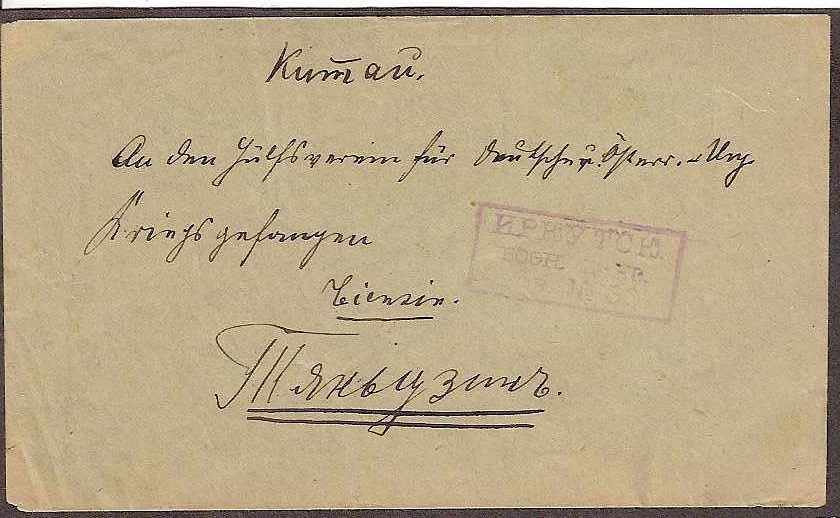 Китай.
An den Hülfsverein für Deutsche u. Österr. - Ung.
Kriegsgefangen
Tiensin.
Тяньцзинь.
ИРКУТСК.
ВОЕН.